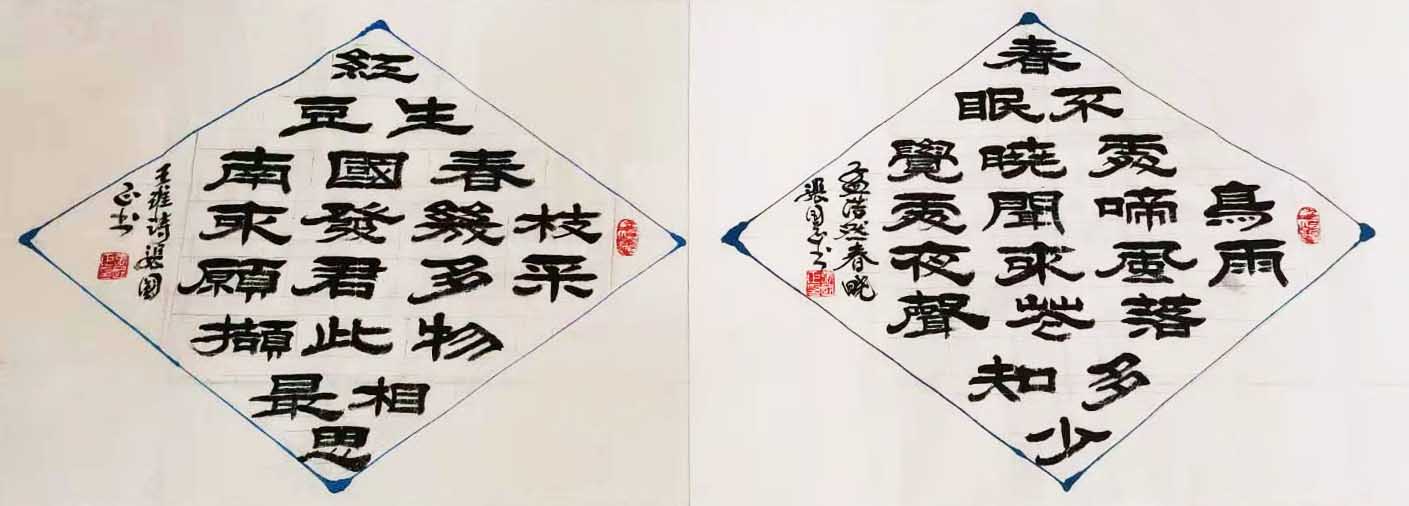 紅
豆生
南國春
來發幾枝
願君多采
擷此物
最相
思
王維詩張國
正书
春
眠不
覺曉處
處聞啼鳥
夜來風雨
聲花落
知多
少
孟浩然春曉
張國正书